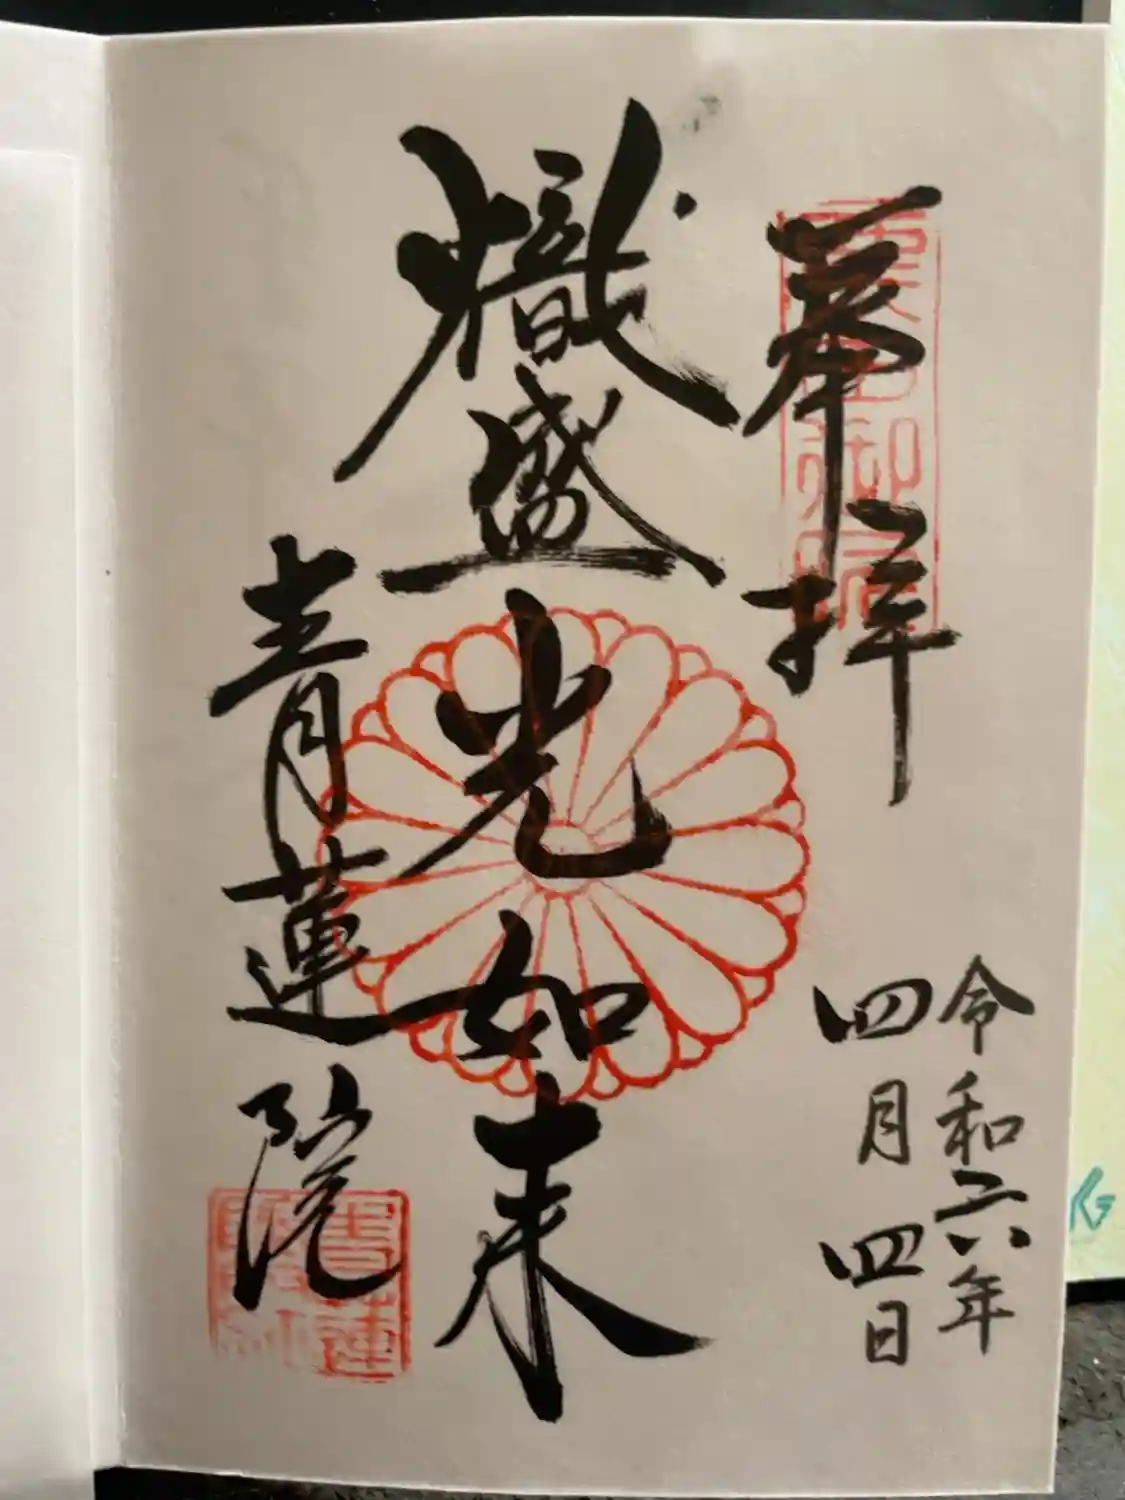 奉拝
令和六年
四月四日
熾盛光如来
青蓮院